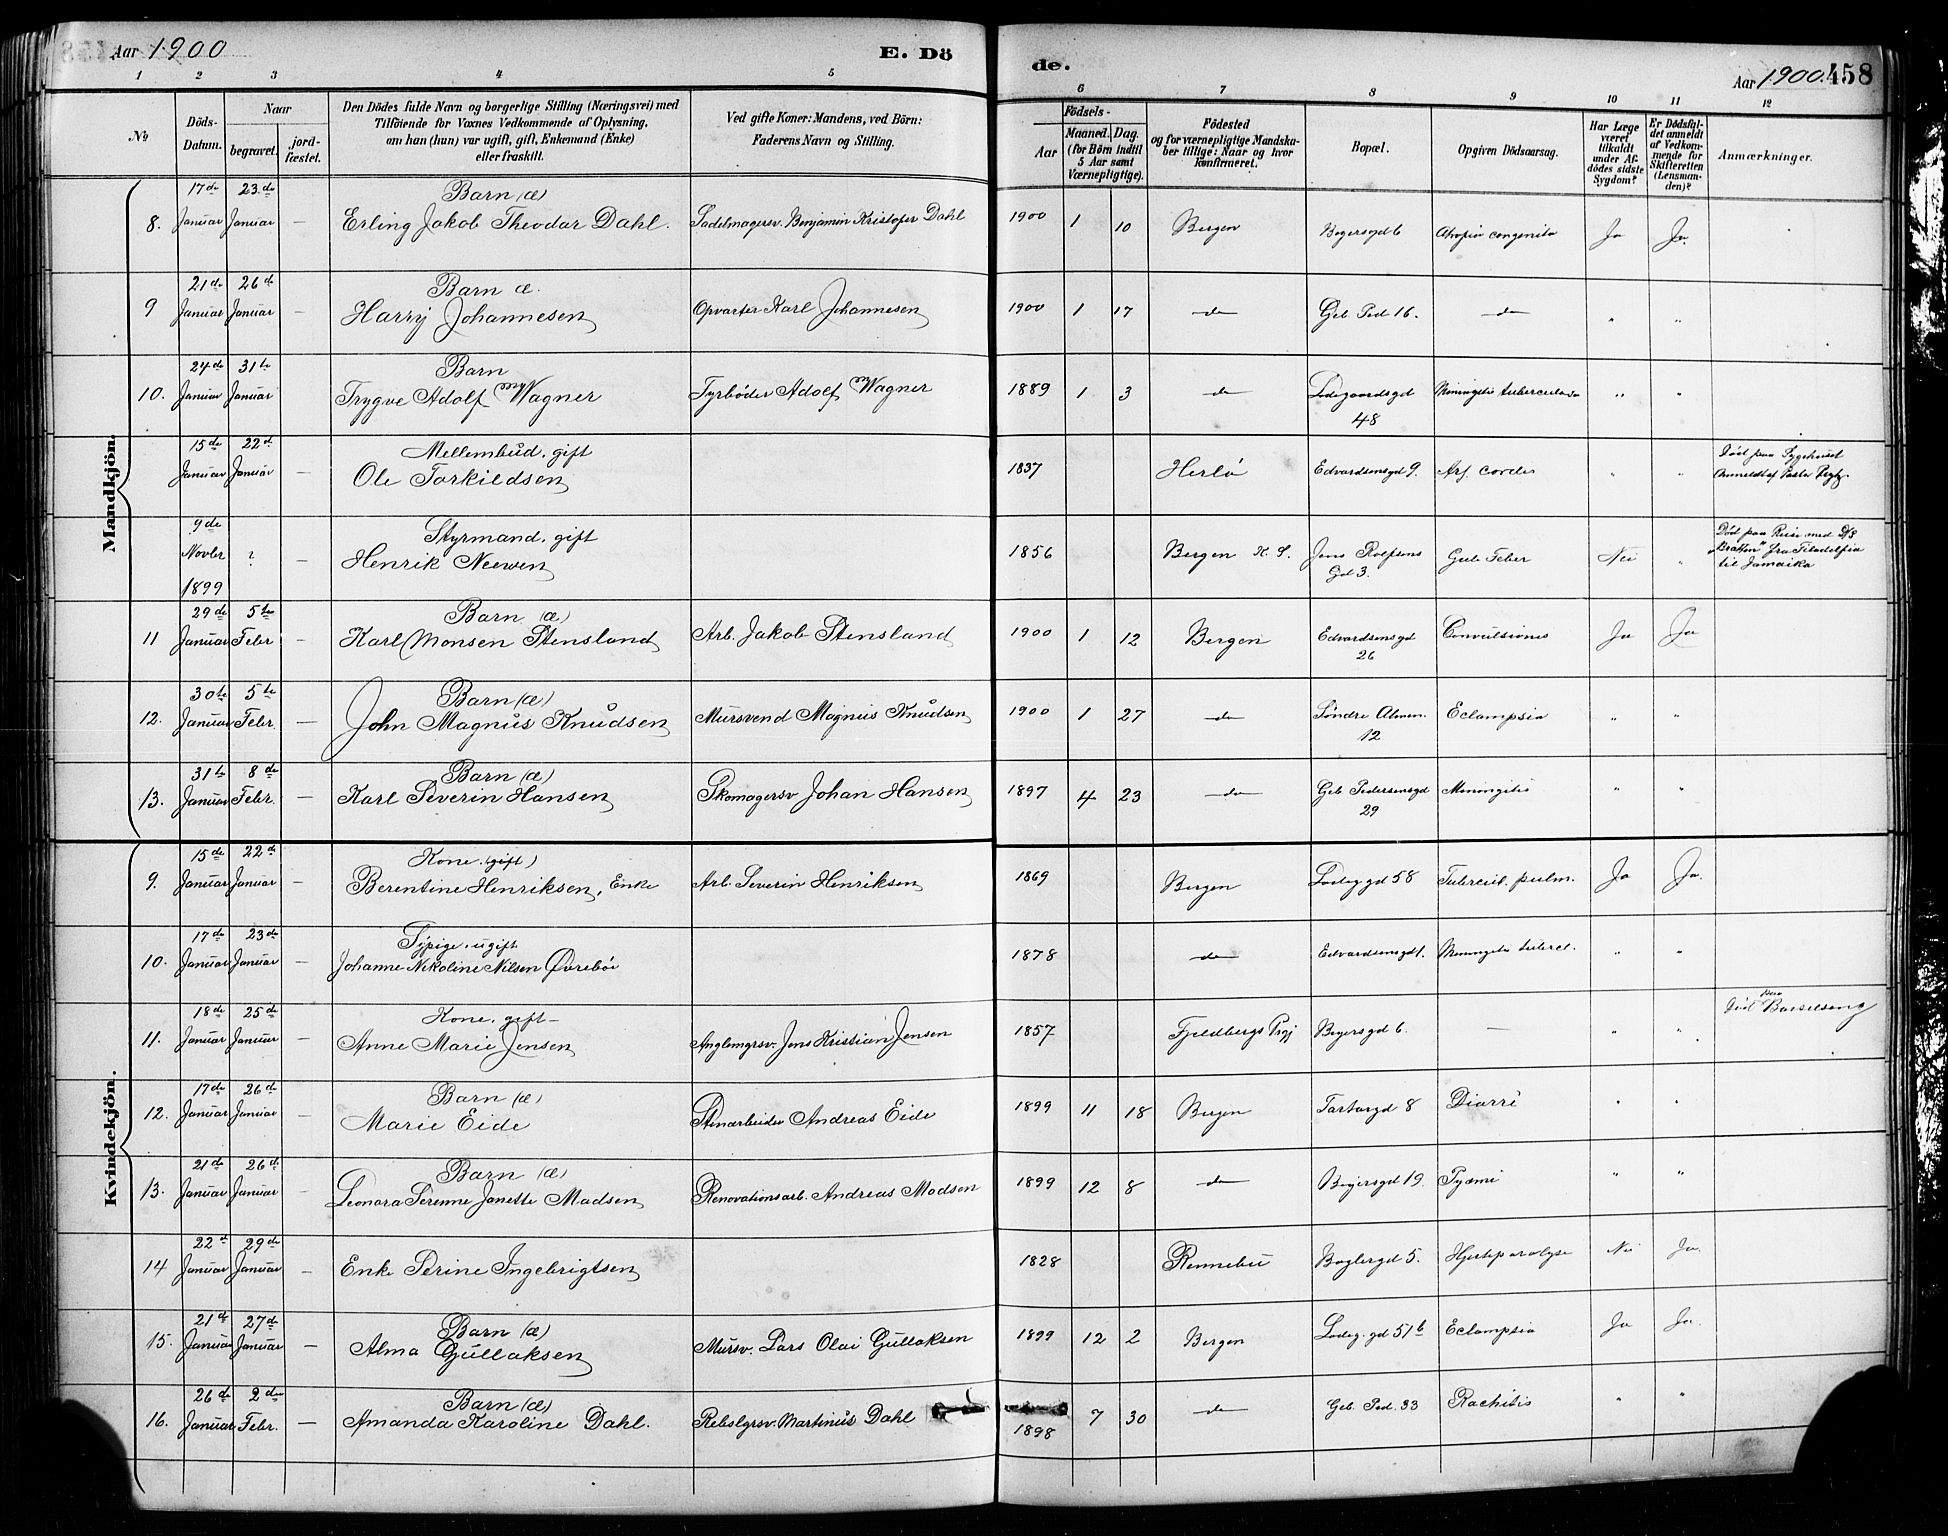 Aar 1900
E. Dö
de.
Aar 1900. 458
1 2 3 4 5 6 7 8 9 10 11 12
№
Döds-
Datum.
Naar
begravet.
jord-
fæstet.
Den Dödes fulde Navn og borgerlige Stilling (Næringsvei) med
Tilföiende for Voxnes Vedkommende af Oplysning,
om han (hun) var ugift, gift, Enkemand (Enke)
eller fraskilt.
Ved gifte Koner: Mandens, ved Börn:
Faderens Navn og Stilling.
Födsels-
Aar
Maaned. Dag.
(for Börn indtil
5 Aar samt
Værnepligtige).
Födested
og for værnepligtige Mandska-
ber tillige: Naar og hvor
konfirmeret.
Bopæl.
Opgiven Dödsaarsag.
Har Læge
været
tilkaldt
under Af-
dödes sidste
Sygdom?
Er Dödsfal-
det anmeldt
af Vedkom-
mende for
Skifteretten
(Lensman-
den)?
Anmærkninger.
Mandkjön.
17de 23de Barn (æ)
8. Januar Januar — Erling Jakob Theodor Dahl. Sadelmagersv. Benjamin Kristofer Dahl 1900 1 10 Bergen Bøgersgd 6 Atropia congenita Ja Ja.
21de 26de Barn æ.
9 Januar Januar — Harry Johannesen Opvarter Karl Johannesen 1900 1 17 — do — Geb. Ped 16. — do — " "
24de 31te Barn
10. Januar Januar Trygve Adolf Wagner Fyrbøder Adolf Wagner 1889 1 3 — do — Ladegaardsgd Meningitis tuberculosa " "
48
15de 22d. Mellembud, gift
Januar Januar — Ole Torkildsen 1837 Herlø Edvardsensgd 9. Arf. cordis " " Død paa Sygehuset
Anmeldt af Pastor
9de Styrmand, gift
Novbr ? — Henrik Neewen 1856 Bergen Jens Rolfsens Gul Feber Nei " Død paa Reise med D/S
Gd 3. "Bratten" fra Filadelfia
til Jamaika
1899
29de 5te Barn (æ)
11 Januar Febr — Karl Monsen Stensland Arb. Jakob Stensland 1900 1 12 Bergen Edvardsensgd Convulsiones Ja Ja
26
30te 5te Barn (æ)
12. Januar Febr — John Magnus Knudsen Mursvend Magnus Knudsen 1900 1 27 — do — Søndre Almen. Eclampsia " "
12
31te 8de Barn (æ)
13. Januar Febr. — Karl Severin Hansen Skomagersv Johan Hansen 1897 4 23 — do — Geb Pedersensgd Meningitis " "
29
Kvindekjön.
15de 22de Kone (gift)
9. Januar Januar — Berentine Henriksen, Enke Arb. Severin Henriksen 1869 Bergen Ladeg gd 58 Tubercul. pulm. Ja Ja.
17de 23de Sypige, ugift
10. Januar Januar — Johanne Nikoline Nilsen Øvrebø 1878 — do — Edvardsensgd 1. Meningitis tubercl. " "
18de 25de Kone, gift —
11. Januar Januar — Anne Marie Jensen Jens Kristian Jensen 1857 Fjeldbergs Prgj Bøgersgd 6. — " " Barselseng
17de 26de Barn (æ)
12. Januar Januar — Marie Eide Stenarbeider Andreas Eide 1899 11 18 Bergen Tartargd 8 Diarré " "
21de 26de Barn (æ)
13. Januar Januar — Leonora Serenne Janette Madsen Renovationsarb. Andreas Madsen 1899 12 8 — do — Bøgersgd 19. Pyæmi " "
22d 29de
14 Januar Januar — Enke Serine Ingebrigtsen 1828 Rennebu Baglergd 5. Hjerteparalyse Nei Ja.
21de 27de Barn (æ)
15. Januar Januar — Alma Gullaksen Mursv. Lars Olai Gullaksen 1899 12 2 Bergen Ladeg. gd 51b Eclampsia Ja Ja.
26de 2den Barn (æ)
16. Januar Febr. — Amanda Karoline Dahl. Rebslgrsv. Martinus Dahl 1898 7 30 — do — Geb. Ped. 33 Rachitis " "